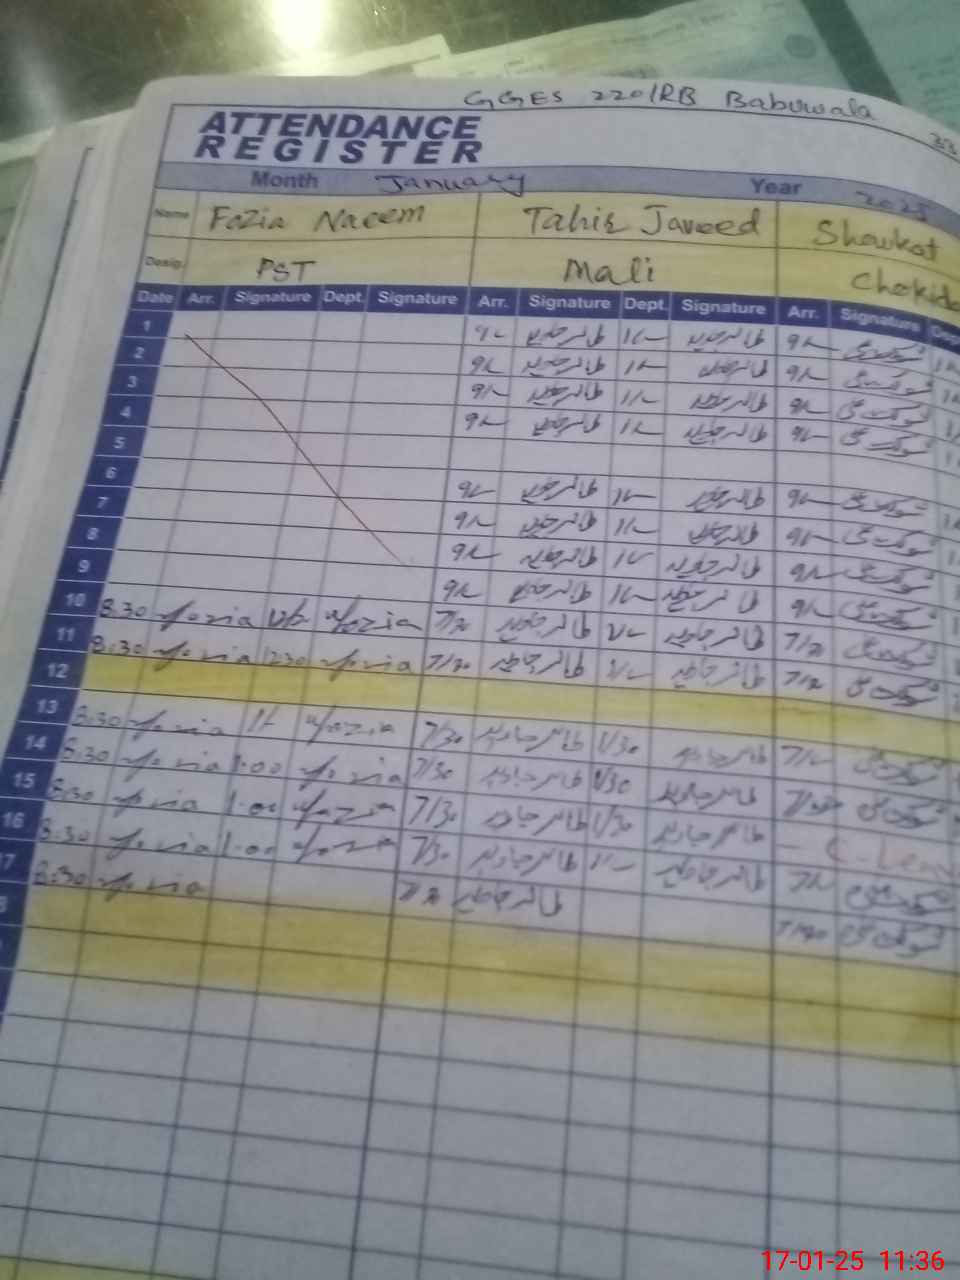 GGES 220/RB Babuwala 33
ATTENDANCE
REGISTER
Month January Year 2025
Name Fozia Naeem Tahir Javeed Shoukat
Desig. PST Mali Chokid
Date Arr. Signature Dept. Signature Arr. Signature Dept. Signature Arr. Signature Dept
1 9/- طاہر جاوید 1/- طاہر جاوید 9/- شوکت علی
2 9/- طاہر جاوید 1/- طاہر جاوید 9/- شوکت علی
3 9/- طاہر جاوید 1/- طاہر جاوید 9/- شوکت علی
4 9/- طاہر جاوید 1/- طاہر جاوید 9/- شوکت علی
5
6 9/- طاہر جاوید 1/- طاہر جاوید 9/- شوکت علی
7 9/- طاہر جاوید 1/- طاہر جاوید 9/- شوکت علی
8 9/- طاہر جاوید 1/- طاہر جاوید 9/- شوکت علی
9 9/- طاہر جاوید 1/- طاہر جاوید 9/- شوکت علی
10 8:30 Fozia Fozia 7/30 طاہر جاوید طاہر جاوید 7/30 شوکت علی
11 8:30 Fozia 1230 Fozia 7/30 طاہر جاوید طاہر جاوید 7/30 شوکت علی
12
13 8:30 Fozia 1/- Fozia 7/30 طاہر جاوید 1/30 طاہر جاوید 7/- شوکت علی
14 8:30 Fozia 1:00 Fozia 7/30 طاہر جاوید 1/30 طاہر جاوید 7/30 شوکت علی
15 8:30 Fozia 1:00 Fozia 7/30 طاہر جاوید 1/30 طاہر جاوید - C.Leave
16 8:30 Fozia 1:00 Fozia 7/30 طاہر جاوید 1/- طاہر جاوید 7/- شوکت علی
17 8:30 Fozia 7/30 طاہر جاوید 7/30 شوکت علی
17-01-25 11:36